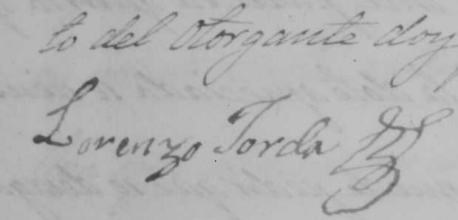 to del Otorgante doy
Lorenzo Jorda